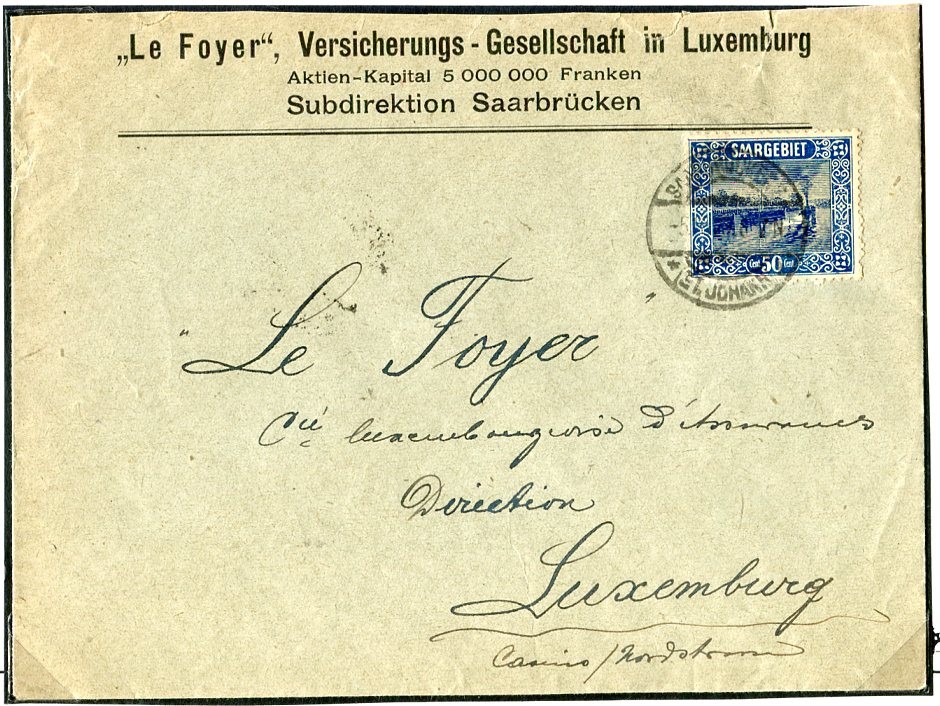 „Le Foyer“, Versicherungs-Gesellschaft in Luxemburg
Aktien-Kapital 5 000 000 Franken
Subdirektion Saarbrücken
SAARGEBIET
Cent. 50 Cent.
(ST. JOHANN)
"Le Foyer"
Cie luxembourgeoise d'Assurances
Direction
Luxemburg
Casino / Nordstrasse